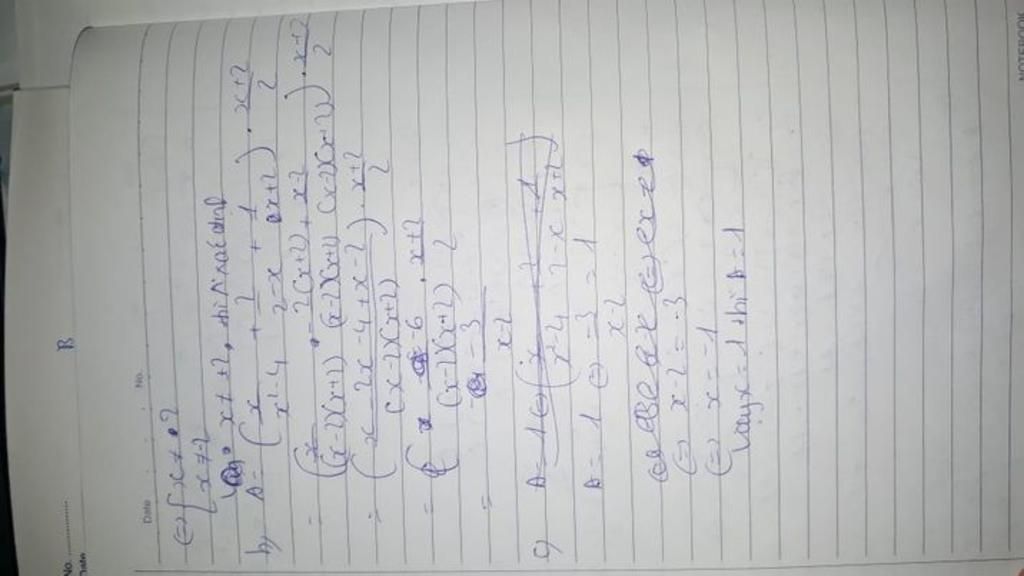 No.
Date
B
Date
No.
(=) { x ≠ 2
x ≠ -2
Vậy x ≠ ±2, thì A xác định
b) A = (x/(x²-4) + 2/(2-x) + 1/(x+2)) . (x+2)/2
= (x/((x-2)(x+2)) - 2(x+2)/((x-2)(x+2)) + x-2/((x-2)(x+2))) . (x+2)/2
= (x 2x-4+x-2/((x-2)(x+2))) . (x+2)/2
= -6/((x-2)(x+2)) . (x+2)/2
= -3/(x-2)
c) A = 1 (=) (x/(x²-4) + 2/(2-x) + 1/(x+2))
A = 1 (=) -3/(x-2) = 1
(=) x-2 = -3
(=) x = -1
Vậy x = 1 thì A = 1
NOTEBOOK